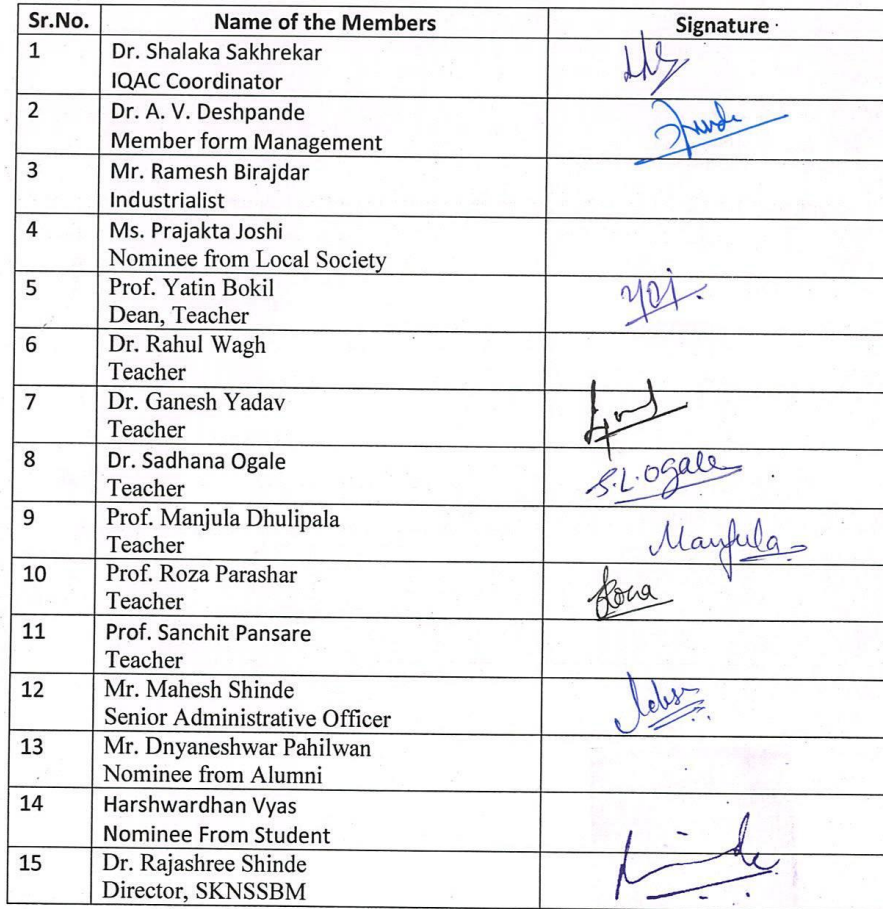 Sr.No. Name of the Members Signature
1 Dr. Shalaka Sakhrekar
IQAC Coordinator
2 Dr. A. V. Deshpande
Member form Management
3 Mr. Ramesh Birajdar
Industrialist
4 Ms. Prajakta Joshi
Nominee from Local Society
5 Prof. Yatin Bokil
Dean, Teacher
6 Dr. Rahul Wagh
Teacher
7 Dr. Ganesh Yadav
Teacher
8 Dr. Sadhana Ogale S.L.Ogale
Teacher
9 Prof. Manjula Dhulipala
Teacher Manjula
10 Prof. Roza Parashar
Teacher
11 Prof. Sanchit Pansare
Teacher
12 Mr. Mahesh Shinde
Senior Administrative Officer
13 Mr. Dnyaneshwar Pahilwan
Nominee from Alumni
14 Harshwardhan Vyas
Nominee From Student
15 Dr. Rajashree Shinde
Director, SKNSSBM